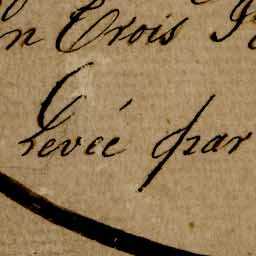 en Trois
Levée par